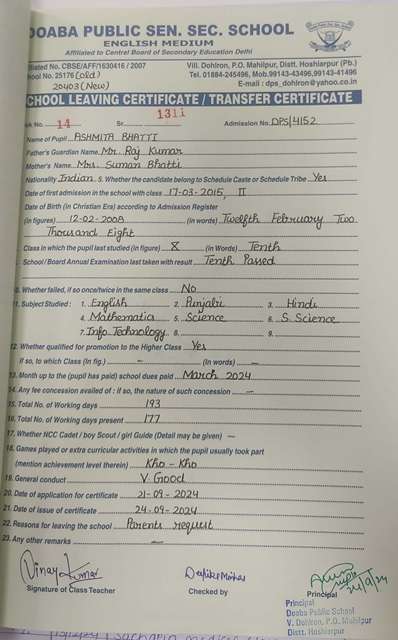 DOABA PUBLIC SEN. SEC. SCHOOL
ENGLISH MEDIUM
Affiliated to Central Board of Secondary Education Delhi
liated No. CBSE/AFF/1630416 / 2007 Vill. Dohlron, P.O. Mahilpur, Distt. Hoshiarpur (Pb.)
hool No. 25176 (old) Tel. 01884-245496, Mob.99143-43496,99143-41496
20403 (New) E-mail : dps_dohlron@yahoo.co.in
CHOOL LEAVING CERTIFICATE / TRANSFER CERTIFICATE
ok No. 14 Sr. 1311 Admission No. DPS/4152
Name of Pupil ASHMITA BHATTI
Father's Guardian Name Mr. Raj Kumar
Mother's Name Mrs. Suman Bhatti
Nationality Indian 5. Whether the candidate belong to Schedule Caste or Schedule Tribe Yes
Date of first admission in the school with class 17-03-2015, II
Date of Birth (in Christian Era) according to Admission Register
(in figures) 12-02-2008 (in words) Twelfth February Two
Thousand Eight
Class in which the pupil last studied (in figure) X (in Words) Tenth
School / Board Annual Examination last taken with result Tenth Passed
10. Whether failed, if so once/twice in the same class No
11. Subject Studied : 1. English 2. Punjabi 3. Hindi
4. Mathematics 5. Science 6. S. Science
7. Info. Technology 8. 9.
12. Whether qualified for promotion to the Higher Class Yes
If so, to which Class (In fig.) - (In words) -
13. Month up to the (pupil has paid) school dues paid March 2024
14. Any fee concession availed of : if so, the nature of such concession -
15. Total No. of Working days 193
16. Total No. of Working days present 177
17. Whether NCC Cadet / boy Scout / girl Guide (Detail may be given) -
18. Games played or extra curricular activities in which the pupil usually took part
(mention achievement level therein) Kho - Kho
19. General conduct V Good
20. Date of application for certificate 21-09-2024
21. Date of issue of certificate 24-09-2024
22. Reasons for leaving the school Parents request
23. Any other remarks -
Vinay Kumar
Signature of Class Teacher Checked by Principal
24/9/24
Principal
Doaba Public School
V. Dohlron, P.O. Mahilpur
Distt. Hoshiarpur